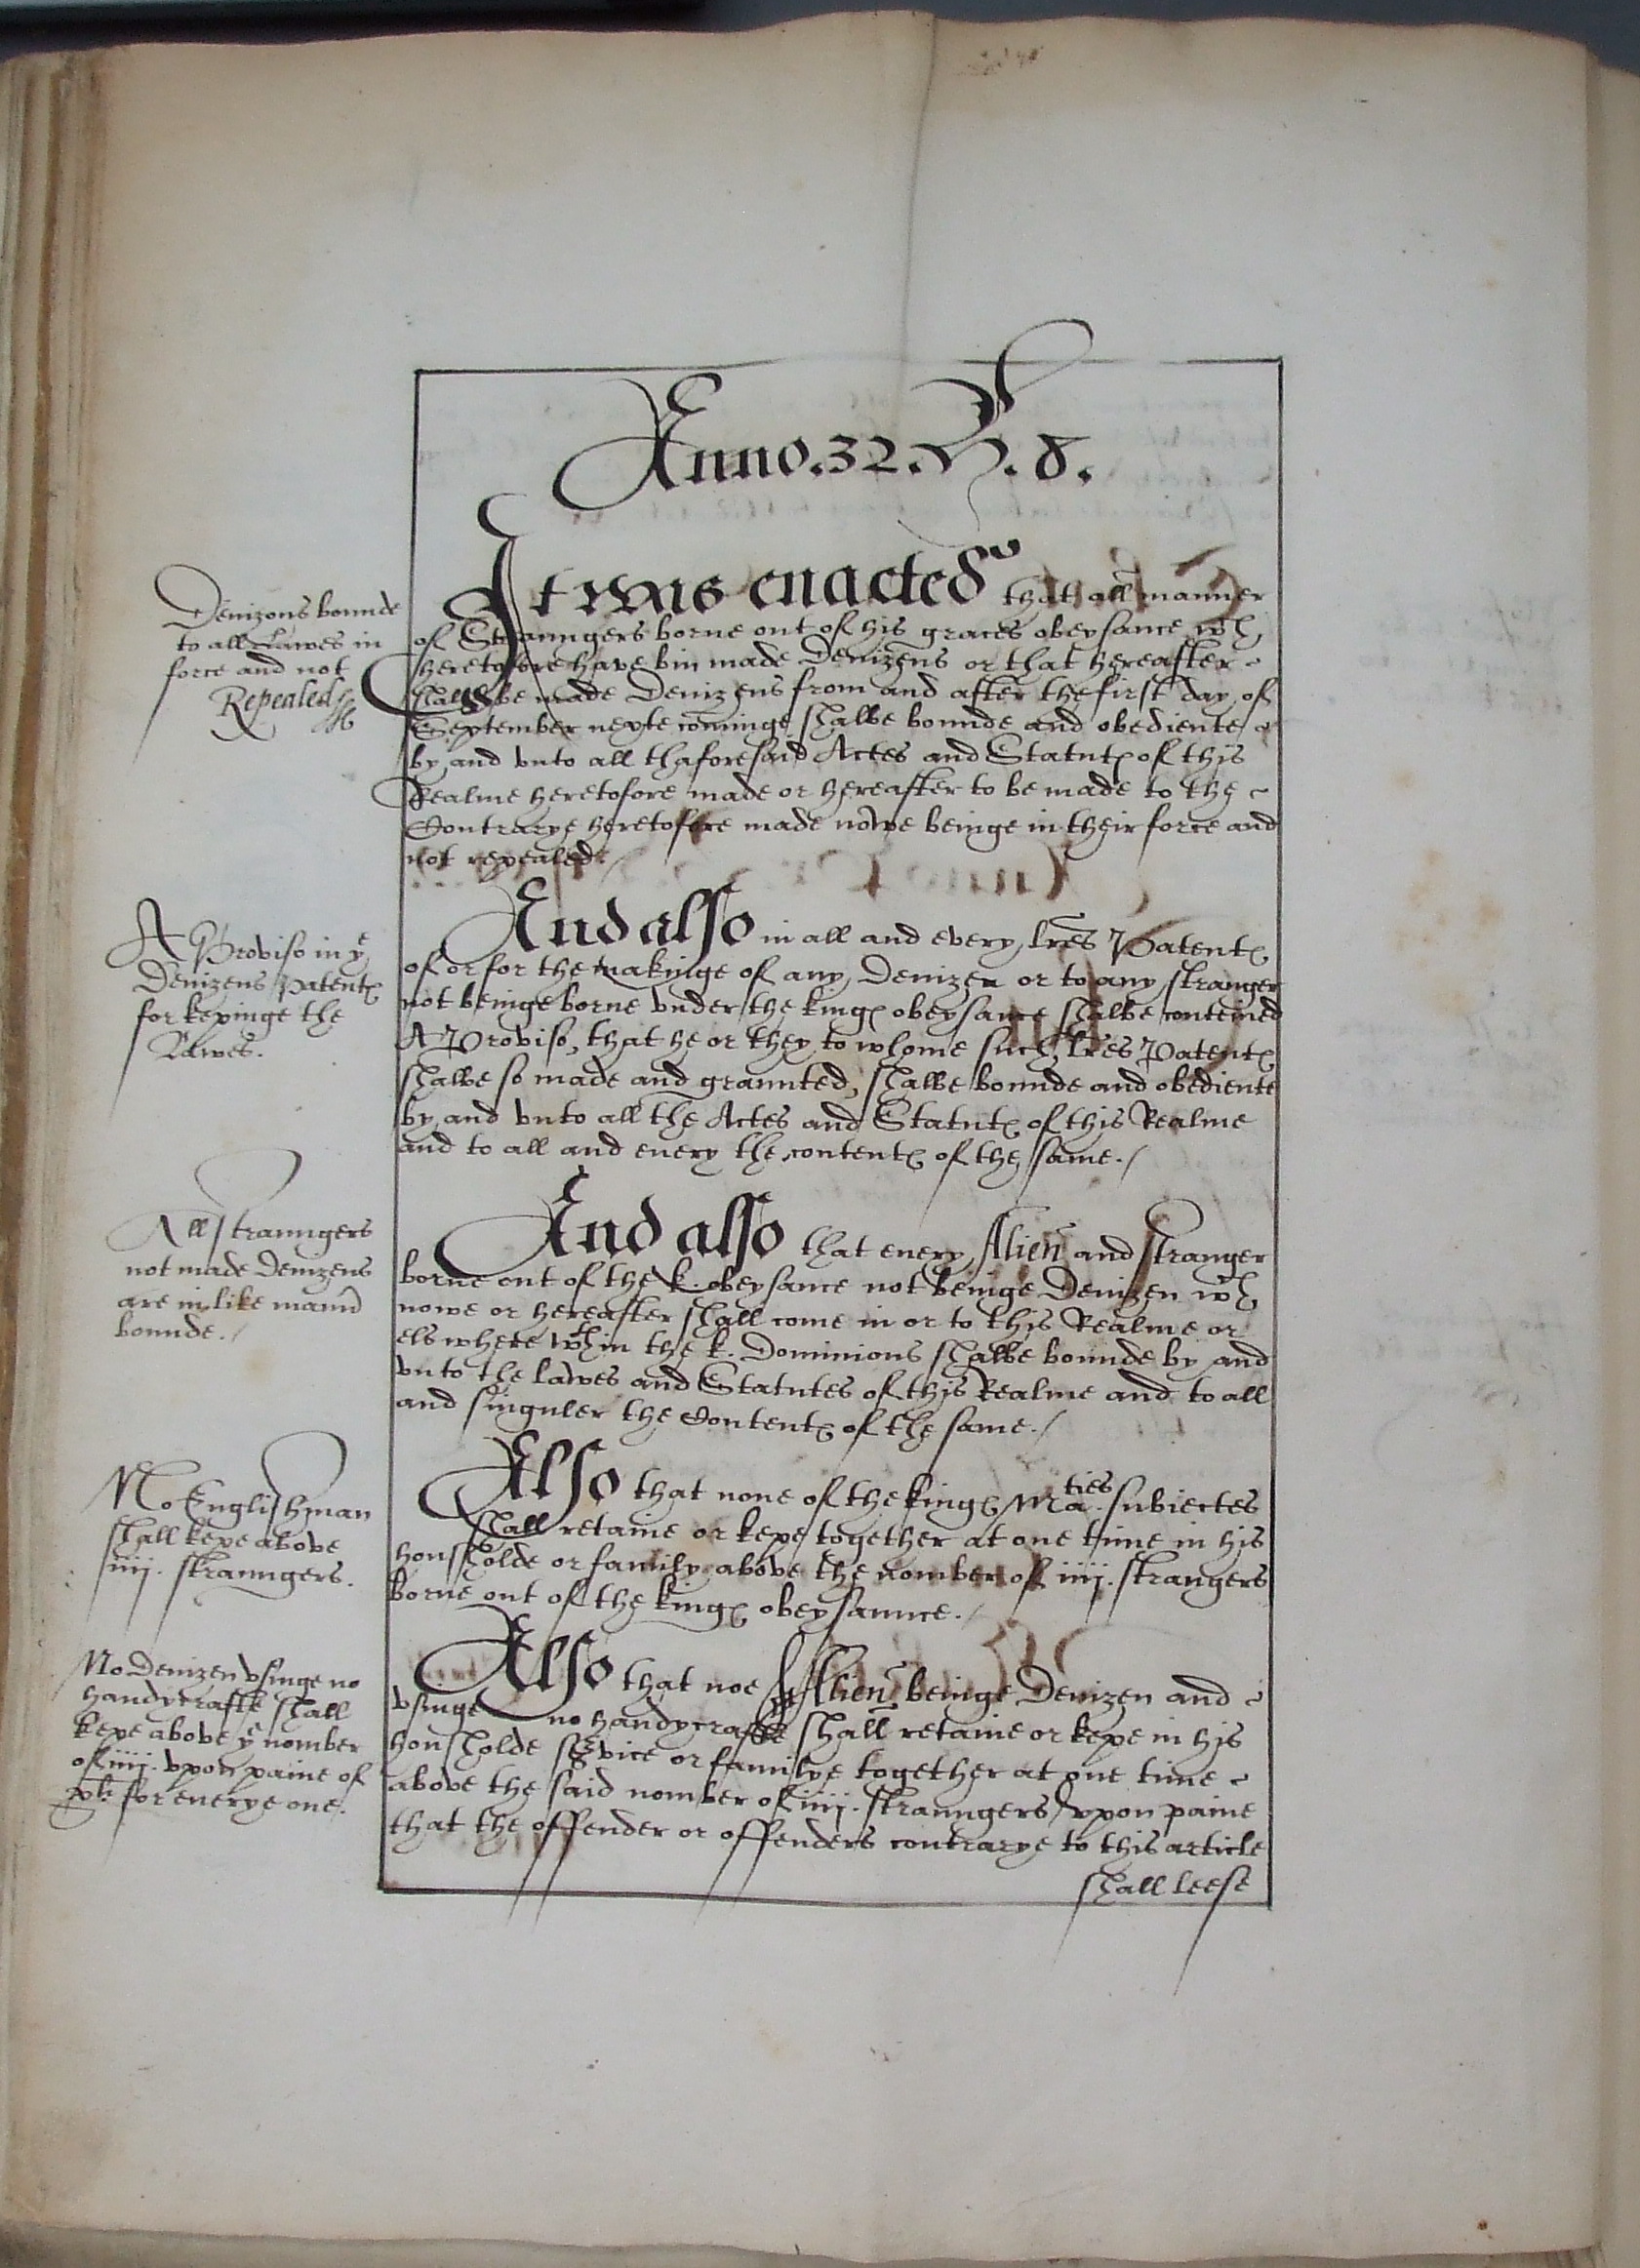 Anno . 32 . H . 8 .
Denizons bounde
to all Lawes in
force and not
Repealed
It was enacted that all manner
of Straungers borne out of his graces obeysance wch
heretofore have bin made Denizens or that hereafter
shall be made Denizens from and after the first day of
September nexte cominge shalbe bounde and obediente
by and vnto all thaforesaid Actes and Statut(es) of this
Realme heretofore made or hereafter to be made to the
Contrarye heretofore made nowe beinge in their force and
not repealed .
A Proviso in ye
Denizens Patent(es)
for kepinge the
Lawes .
And also in all and every lres Patent(es)
of or for the makinge of any Denizen or to any stranger
not beinge borne vnder the king(es) obeysance shalbe conteined
A Proviso, that he or they to whome such lres Patent(es)
shalbe so made and graunted, shalbe bounde and obediente
by and vnto all the Actes and Statut(es) of this Realme
and to all and euery the content(es) of the same ./
All straungers
not made Denizens
are in like mann
bounde ./
And also that euery Alien and stranger
borne out of the k. obeysance not beinge Denizen wch
nowe or hereafter shall come in or to this Realme or
elswhere wthin the k. Dominions shalbe bounde by and
vnto the lawes and Statutes of this Realme and to all
and singuler the Content(es) of the same ./
No Englishman
shall kepe above
iiij . straungers .
Also that none of the king(es) Maties subiectes
shall retaine or kepe together at one time in his
housholde or family above the nomber of iiij . strangers
borne out of the king(es) obeysaunce ./
No Denizen vsinge no
handycrafte shall
kepe above ye nomber
of iiij . vpon paine of
xli for euerye one .
Also that noe Alien beinge Denizen and
vsinge no handycrafte shall retaine or kepe in his
housholde service or familye together at one time
above the said nomber of iiij . straungers vpon paine
that the offender or offenders contrarye to this article
shall leese